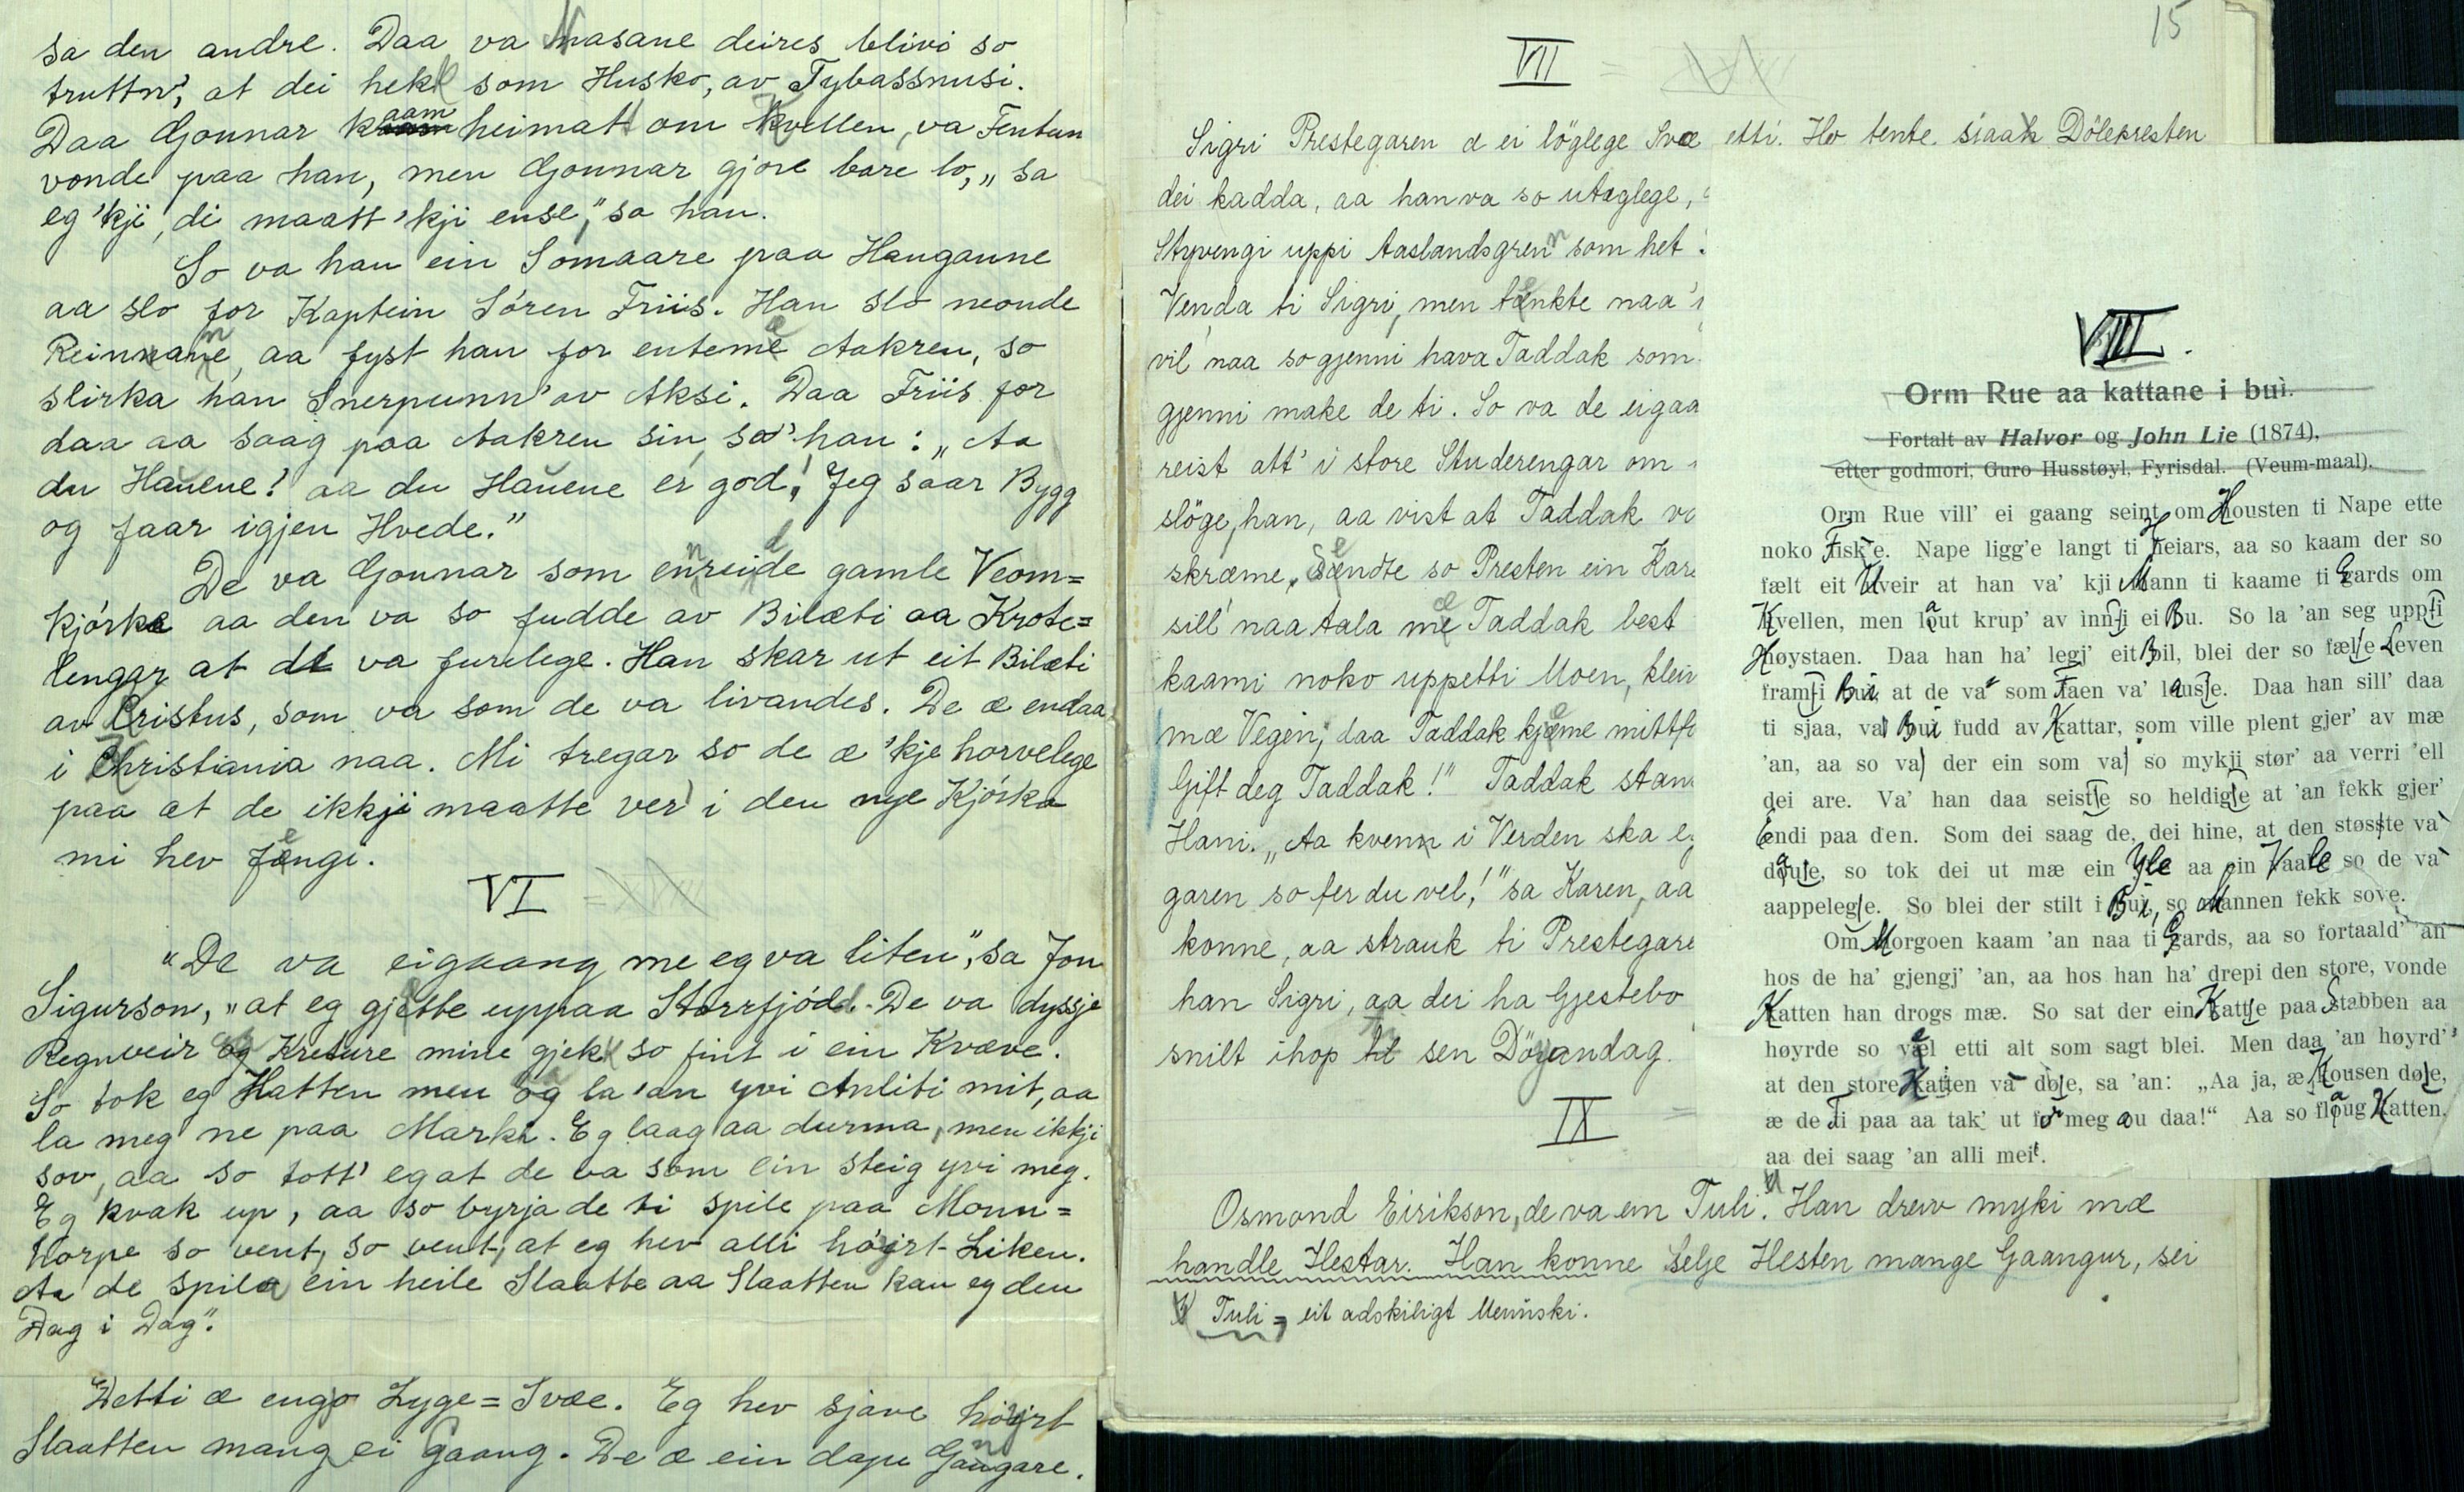 sa den andre. Daa va Nasane deires blivi so
truttn', at dei hekk som Husko, av Tybassnusi.
Daa Gonnar kaam heimatt om Kvellen, va Fentun
vonde paa han, men Gonnar gjore bare lo, „sa
eg 'kji, di maatt 'kji ense," sa han.
So va han ein Somaare paa Hauganne
aa slo for Kaptein Sóren Friis. Han slo neonde
Reinnane, aa fyst han for entemæ Aakren, so
slirka han Snerpunn' av Aksi. Daa Friis for
daa aa saag paa Aakren sin, sa' han: „Aa
du Hauene! aa du Hauene er god! Jeg saar Bygg
og faar igjen Hvede."
De va Gonnar som enreidde gamle Veom=
kjórka aa den va so fudde av Bilæti aa Krote=
lengar at de va furelege. Han skar ut eit Bilæti
av Kristus, som va som de va livandes. De æ endaa
i Kristiania naa. Mi tregar so de æ 'kje horvelege
paa at de ikkji maatte ver' i den nye Kjórka
mi hev fengi.
VI
"De va eigaang me eg va liten", sa Jon
Sigurson, „at eg gjette uppaa Storrfjódd. De va dyssje
Regnveir og Kreture mine gjekk so fint i ein Kvæve.
So tok eg Hatten men og la 'an yvi Anliti mit, aa
la meg ne paa Marki. Eg laag aa durma, men ikkji
sov, aa so tott' eg at de va som ein steig yvi meg.
Eg kvak up, aa so byrja de ti spile paa Monn=
horpe so vent, so vent, at eg hev alli höyrt Liken.
Aa de spila ein heile Slaatte aa Slaatten kan eg den
Dag i Dag".
Detti æ engo Lyge=Svæe. Eg hev sjave höyrt
Slaatten mang ei Gaang. De æ ein dapu Gangare.
15
VII
Sigri Prestegaren æ ei löglege Svæ etti. Ho tente siaak Dölepresten
dei kadda, aa han va so utæglege,
Styvengi uppi Aaslandsgrenn som het
Venda ti Sigri, men tenkte naa
vil naa so gjenni hava Taddak som
gjenni make de ti. So va de eigaa
reist att' i store Studerengar om
slöge, han, aa vist at Taddak va
skræme. Sendte so Presten ein Kar
sill' naa tala mæ Taddak best
kaami noko uppetti Moen, klein
mæ Vegin, daa Taddak kjeme mittf
Gift deg Taddak!" Taddak stan
Hani. „Aa kvenn i Verden ska e
garen so fer du vel!" sa Karen, aa
konne, aa strauk ti Prestegare
han Sigri, aa dei ha Gjestebo
snilt ihop til sen Döyandag.
VIII.
Orm Rue aa kattane i bui.
Fortalt av Halvor og John Lie (1874),
etter godmori, Guro Husstøyl, Fyrisdal. (Veum-maal).
Orm Rue vill' ei gaang seint om Housten ti Nape ette
noko Fisk'e. Nape ligg'e langt ti Heiars, aa so kaam der so
fælt eit Uveir at han va' kji Mann ti kaame ti Gards om
Kvellen, men laut krup' av innfi ei Bu. So la 'an seg uppfi
Høystaen. Daa han ha' legj' eit Bil, blei der so fæle Leven
framfi Bui at de va' som Faen va' lause. Daa han sill' daa
ti sjaa, va Bui fudd av Kattar, som ville plent gjer' av mæ
'an, aa so va der ein som va so mykji stør' aa verri 'ell
dei are. Va' han daa seiste so heldige at 'an fekk gjer'
Endi paa den. Som dei saag de, dei hine, at den støsste va
daue, so tok dei ut mæ ein Yle aa ein Vaale so de va
aappelege. So blei der stilt i Bui, so Mannen fekk sove.
Om Morgoen kaam 'an naa ti Gards, aa so fortaald' 'an
hos de ha' gjengj' 'an, aa hos han ha' drepi den store, vonde
Katten han drogs mæ. So sat der ein Katte paa Stabben aa
høyrde so vel etti alt som sagt blei. Men daa 'an høyrd'
at den store Katten va døe, sa 'an: „Aa ja, æ Housen døe,
æ de Ti paa aa tak' ut for meg au daa!“ Aa so flaug Katten,
aa dei saag 'an alli meir.
IX
Osmond Eirikson, de va ein Tuli. Han dreiv myki mæ
handle Hestar. Han konne selje Hesten mange Gaangur, sei
Tuli = eit adskiligt Menniski.